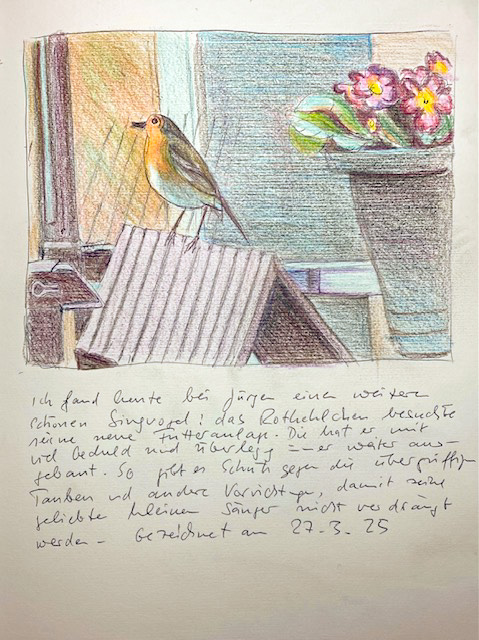 Ich fand heute bei Jürgen einen weiteren
schönen Singvogel! das Rotkehlchen besuchte
seine neue Futteranlage. Die hat er mit
viel Geduld und Überlegg — er weiter aus-
gebaut. So gibt es Schutz gegen die übergriffigen
Tauben ud andere Vorrichtungen, damit seine
geliebten kleinen Sänger nicht verdrängt
werden - gezeichnet am 27-3-25